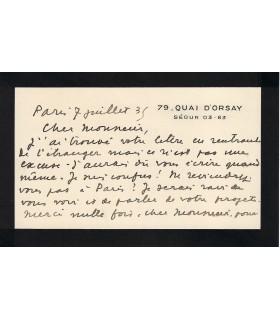 79, QUAI D'ORSAY
SÉGUR 03-63
Paris 7 juillet 35
Cher Monsieur,
J'ai trouvé votre lettre en rentrant
de l'étranger mais ce n'est pas une
excuse. J'aurais dû vous écrire quand
même. Je suis confus! Ne reviendrez
vous pas à Paris? Je serais ravi de
vous voir et de parler de votre projet.
Merci mille fois, cher Monsieur, pour